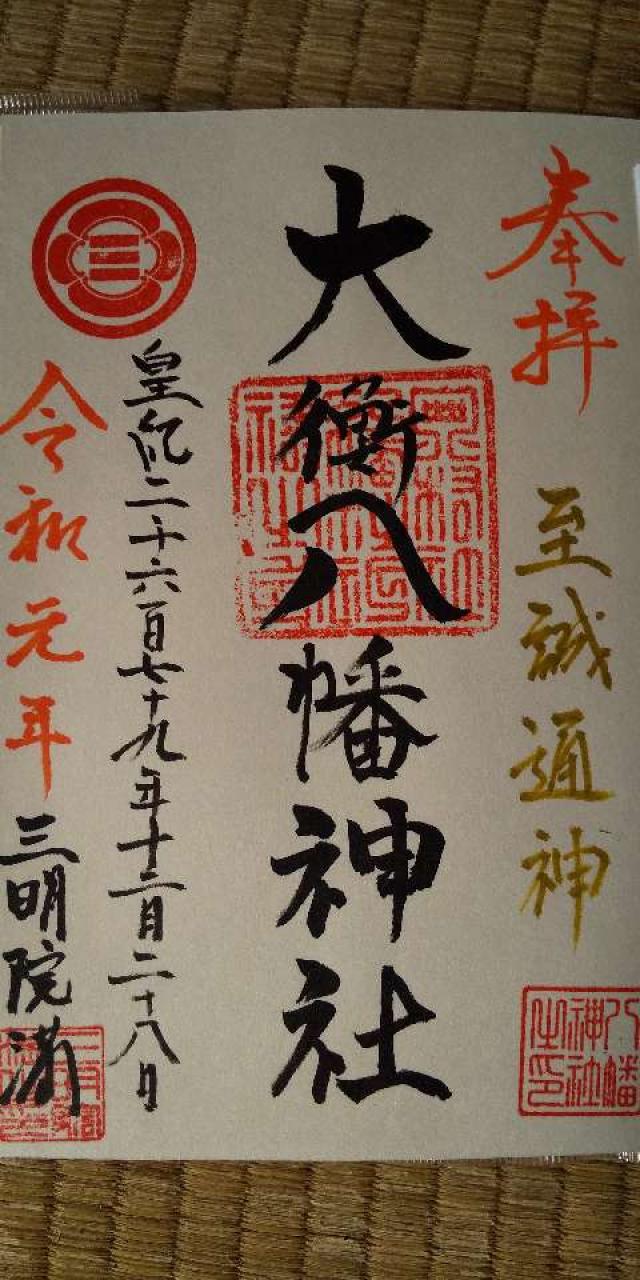 奉拝
至誠通神
八幡神社之印
大衡八幡神社
皇紀二千六百七十九年十二月二十八日
令和元年
三明院